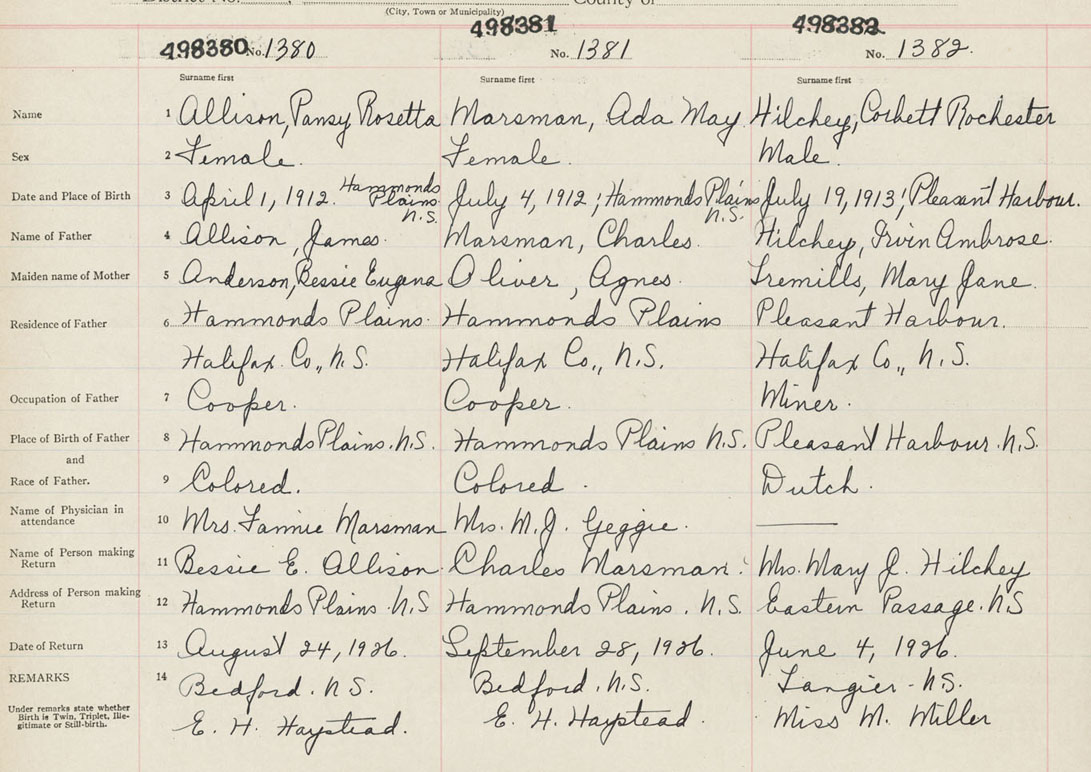 (City, Town or Municipality)
498380 No. 1380 498381 No. 1381 498382 No. 1382.
Surname first Surname first Surname first
Name 1 Allison, Pansy Rosetta Marsman, Ada May Hilchey, Corbett Rochester
Sex 2 Female. Female. Male.
Date and Place of Birth 3 April 1, 1912. Hammonds Plains N.S. July 4, 1912; Hammonds Plains N.S. July 19, 1913; Pleasant Harbour.
Name of Father 4 Allison, James. Marsman, Charles. Hilchey, Irvin Ambrose.
Maiden name of Mother 5 Anderson, Bessie Eugena Oliver, Agnes. Tremills, Mary Jane.
Residence of Father 6 Hammonds Plains. Hammonds Plains Pleasant Harbour.
Halifax Co., N.S. Halifax Co., N.S. Halifax Co., N.S.
Occupation of Father 7 Cooper. Cooper. Miner.
Place of Birth of Father 8 Hammonds Plains. N.S. Hammonds Plains N.S. Pleasant Harbour. N.S.
and
Race of Father. 9 Colored. Colored. Dutch.
Name of Physician in attendance 10 Mrs. Fannie Marsman Mrs. M.J. Geggie.
Name of Person making Return 11 Bessie E. Allison. Charles Marsman. Mrs. Mary J. Hilchey
Address of Person making Return 12 Hammonds Plains. N.S Hammonds Plains. N.S. Eastern Passage. N.S
Date of Return 13 August 24, 1926. September 28, 1926. June 4, 1926.
REMARKS 14 Bedford. N.S. Bedford. N.S. Tangier - N.S.
Under remarks state whether Birth is Twin, Triplet, Ille-gitimate or Still-birth. E. H. Haystead. E. H. Haystead. Miss M. Miller